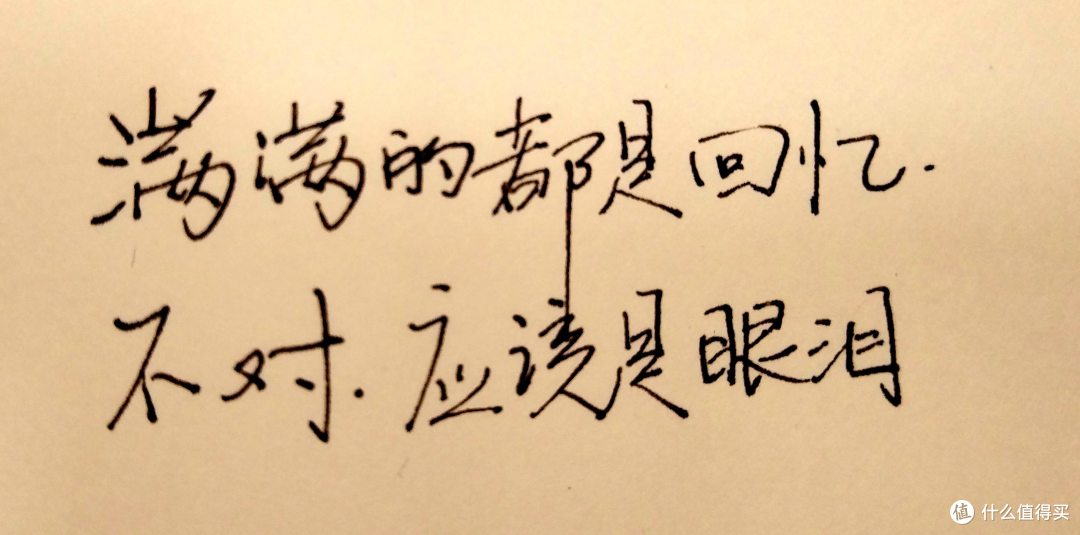 满满的都是回忆.
不对.应该是眼泪
值 什么值得买